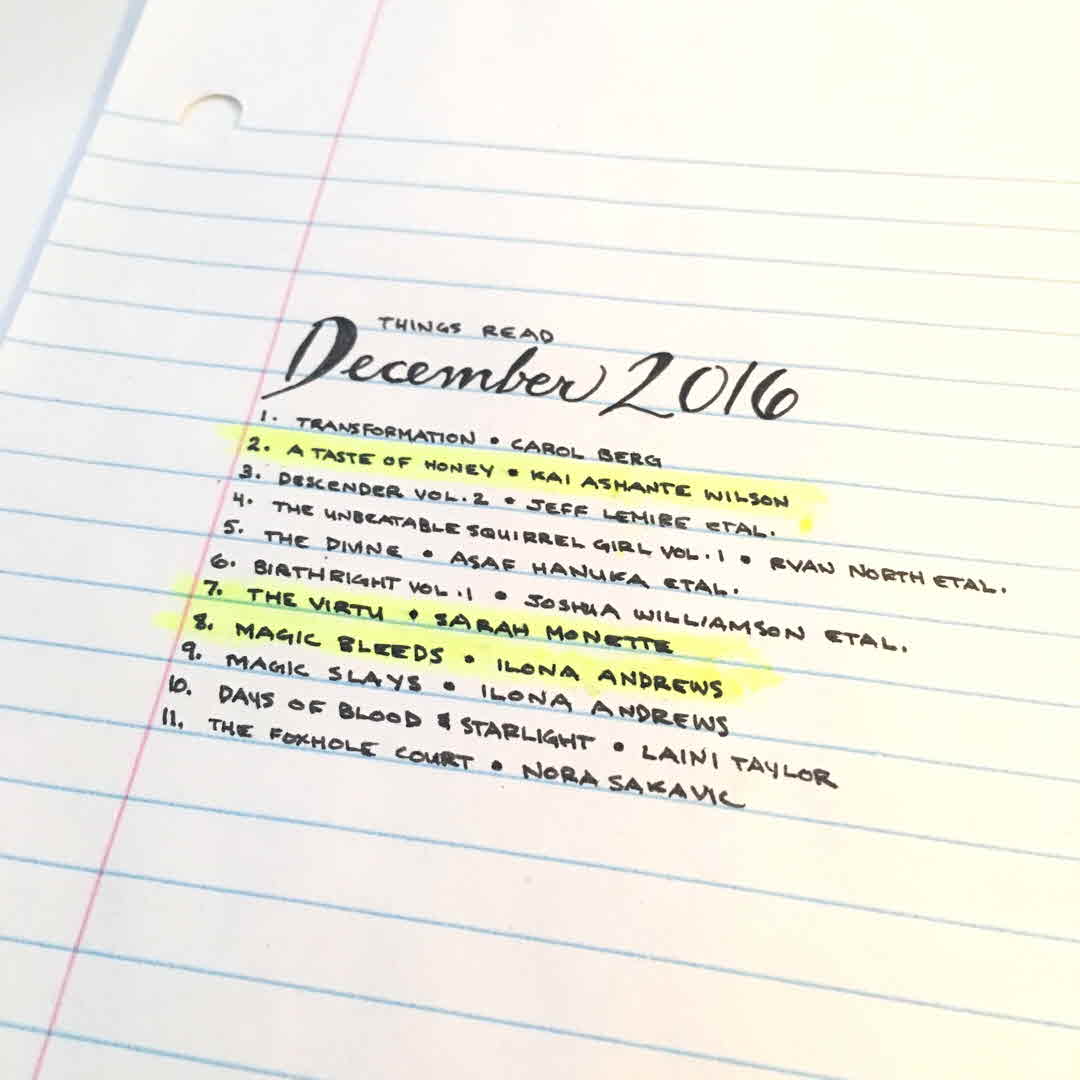 THINGS READ
December 2016
1. TRANSFORMATION • CAROL BERG
2. A TASTE OF HONEY • KAI ASHANTE WILSON
3. DESCENDER VOL.2 • JEFF LEMIRE ETAL.
4. THE UNBEATABLE SQUIRREL GIRL VOL.1 • RYAN NORTH ETAL.
5. THE DIVINE • ASAF HANUKA ETAL.
6. BIRTHRIGHT VOL.1 • JOSHUA WILLIAMSON ETAL.
7. THE VIRTU • SARAH MONETTE
8. MAGIC BLEEDS • ILONA ANDREWS
9. MAGIC SLAYS • ILONA ANDREWS
10. DAYS OF BLOOD & STARLIGHT • LAINI TAYLOR
11. THE FOXHOLE COURT • NORA SAKAVIC